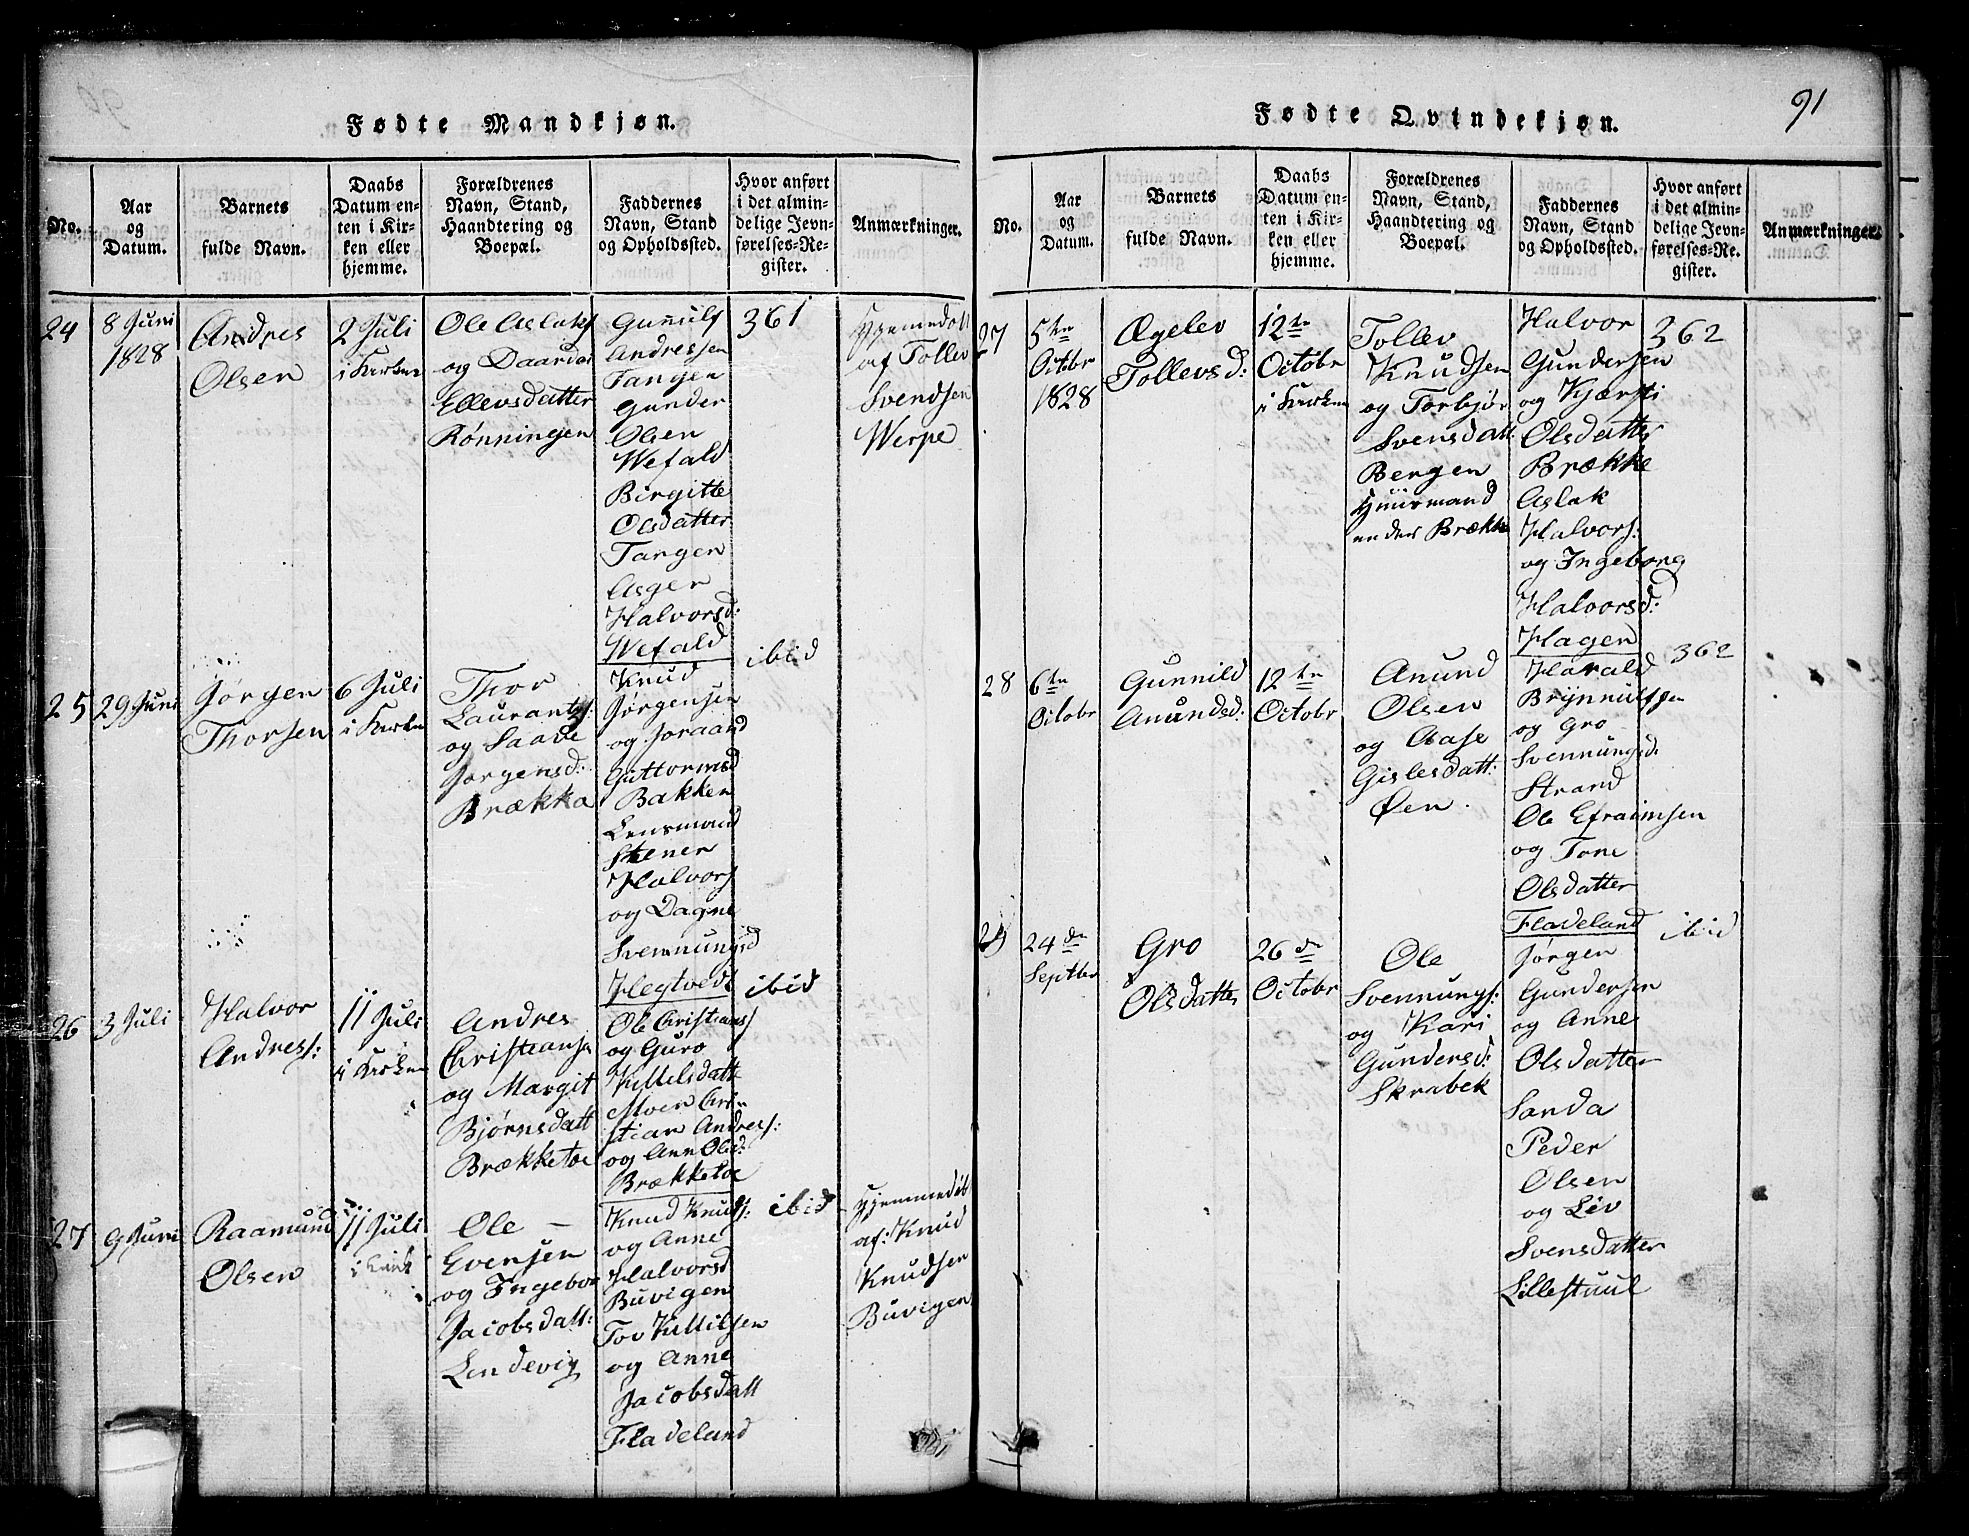 91
Fødte Mandkjøn.
No.
Aar
og
Datum.
Barnets
fulde Navn.
Daabs
Datum en-
ten i Kir-
ken eller
hjemme.
Forældrenes
Navn, Stand,
Haandtering og
Boepæl.
Faddernes
Navn, Stand
og Opholdssted.
Hvor anført
i det almin-
delige Jevn-
førelses-Re-
gister.
Anmærkninger.
24
8 Juni
1828
Andres
Olsen
2 Juli
i Kirken
Ole Aslaks
og Daardæ
Ellevsdatter
Rønningen
Gunulf
Andressen
Tangen
Gunder
Olsen
Wefald
Birgitte
Olsdatter
Tangen
Asger
Halvorsd:
Wefald
361
Hjemedøbt
af Tollev
Svendsen
Werpe
25
29 Juni
Jørgen
Thorsen
6 Juli
i Kirken
Thor
Laurants:
og Saave
Jørgensd:
Brække
Knud
Jørgensen
og Joraand
Guttormsd
Bakken
Lensmand
Stener
Halvors
og Dagne
Svennungsd
Hegtvedt
ibid
26
3 Juli
Halvor
Andres:
11 Juli
i Kirken
Andres
Christiansen
og Margit
Bjørnsdatt
Brækketøe
Ole Christians
og Guro
Kittelsdatt
Moen Chri-
stian Andres:
og Ann Olsd:
Brækketøe
ibid
27
9 Juni
Raamund
Olsen
11 Juli
i Kirk
Ole –
Evensen
og Ingebor
Jacobsdatt:
Lendevig
Knud Knuds:
og Anne
Halvorsd
Buvigen
Tov Kittilsen
og Anne
Jacobsdatt
Fladeland
ibid
Hjemmedøbt
af: Knud
Knudsen
Buvigen
Fødte Qvindekjøn.
No.
Aar
og
Datum.
Barnets
fulde Navn.
Daabs
Datum en-
ten i Kir-
ken eller
hjemme.
Forældrenes
Navn, Stand,
Haandtering og
Boepæl.
Faddernes
Navn, Stand
og Opholdssted.
Hvor anført
i det almin-
delige Jevn-
førelses-Re-
gister.
Anmærkninger.
27
5te
Octobr
1828
Ægelev
Tollevsd:
12te
Octobr
i Kirken
Tollev
Knudsen
og Torbjør
Svensdatt:
Bergen
Huusmand
under Brække
Halvor
Gundersen
og Kjersti
Olsdatter
Brække
Aslak
Halvors:
og Ingeborg
Halvorsd:
Hagen
362
28
6te
Octobr
Gunnild
Anundsd:
12te
Octobr
Anund
Olsen
og Aase
Gislesdatt:
Øen.
Harald
Brynnulfsen
og Gro
Svennungsd:
Strand
Ole Efraimsen
og Tone
Olsdatter
Fladeland
362
29
24de
Septbr
Gro
Olsdatter
26de
Octobr
Ole
Svennungs:
og Kari
Gundersd:
Skrabek
Jørgen
Gundersen
og Anne
Olsdatter
Sanda
Peder
Olsen
og Liv
Svensdatter
Lillestuul
ibid